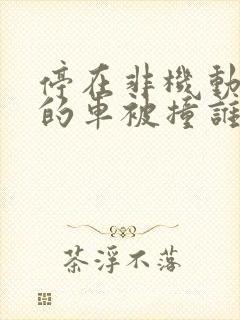 停在非機動
的車被撞誰
茶浮不落